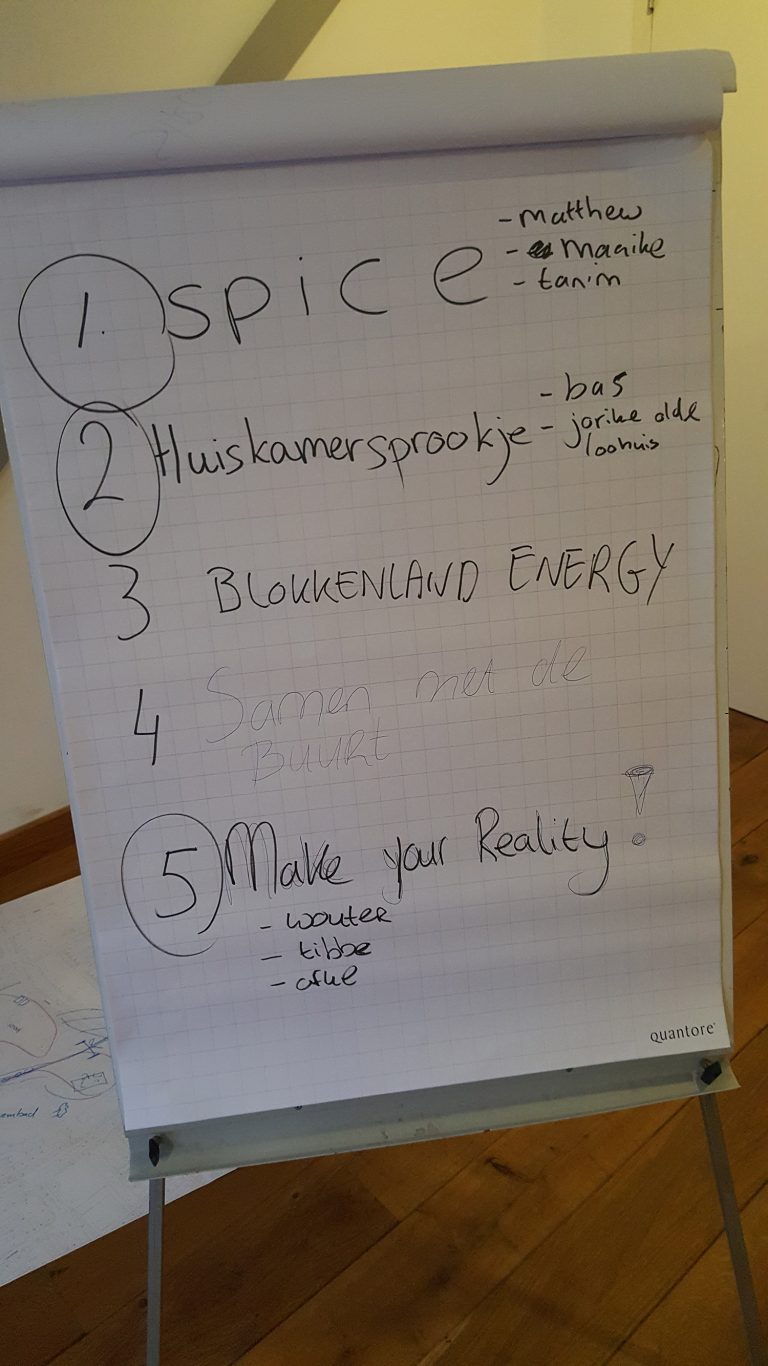 1. spice
- matthew
- maaike
- tanim
2 Huiskamersprookje
- bas
- jorike olde
loohuis
3 BLOKKENLAND ENERGY
4 Samen met de
BUURT
5 Make your Reality!
- wouter
- tibbe
- afke
quantore